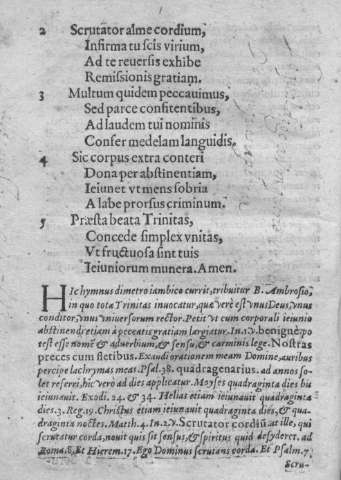 2 Scrutator alme cordium,
Infirma tu scis virium,
Ad te reuersis exhibe
Remissionis gratiam.
3 Multum quidem peccauimus,
Sed parce confitentibus,
Ad laudem tui nominis
Confer medelam languidis.
4 Sic corpus extra conteri
Dona per abstinentiam,
Ieiunet vt mens sobria
A labe prorsus criminum.
5 Præsta beata Trinitas,
Concede simplex vnitas,
Vt fructuosa sint tuis
Ieiuniorum munera. Amen.
HIc hymnus dimetro iambico currit, tribuitur B. Ambrosio,
in quo tota Trinitas inuocatur, quæ verè est vnus Deus, vnus
conditor, vnus vniuersorum rector. Petit vt cum corporali ieiunio
abstinendi etiam à peccatis gratiam largiatur. In. 1. v. benignè, po
test esse nomē & aduerbium, & sensu, & carminis lege. Nostras
preces cum fletibus. Exaudi orationem meam Domine, auribus
percipe lachrymas meas. Psal. 38. quadragenarius. ad annos so-
let referri, hic verò ad dies applicatur. Moyses quadraginta dies bis
ieiunauit. Exodi. 24. & 34. Helias etiam ieiunauit quadraginta
dies. 3. Reg. 19. Christus etiam ieiunauit quadraginta dies, & qua-
draginta noctes. Matth. 4. In. 2. v. Scrutator cordiū. at ille, qui
scrutatur corda, nouit quis sit sensus, & spiritus quid desyderet. ad
Roma. 8. Et Hierem. 17. Ego Dominus scrutans corda. Et Psalm. 7.
Scru-